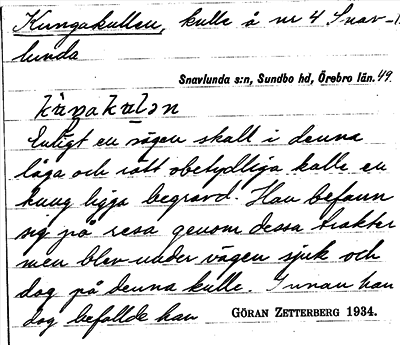 Kungakullen, kulle å nr 4 Snav-
lunda
Snavlunda s:n, Sundbo hd, Örebro län. 49.
Enligt en sägen skall i denna
låga och rätt obetydliga kulle en
kung ligga begravd. Han befann
sig på resa genom dessa trakter
men blev under vägen sjuk och
dog på denna kulle. Innan han
dog befallde han
GÖRAN ZETTERBERG 1934.